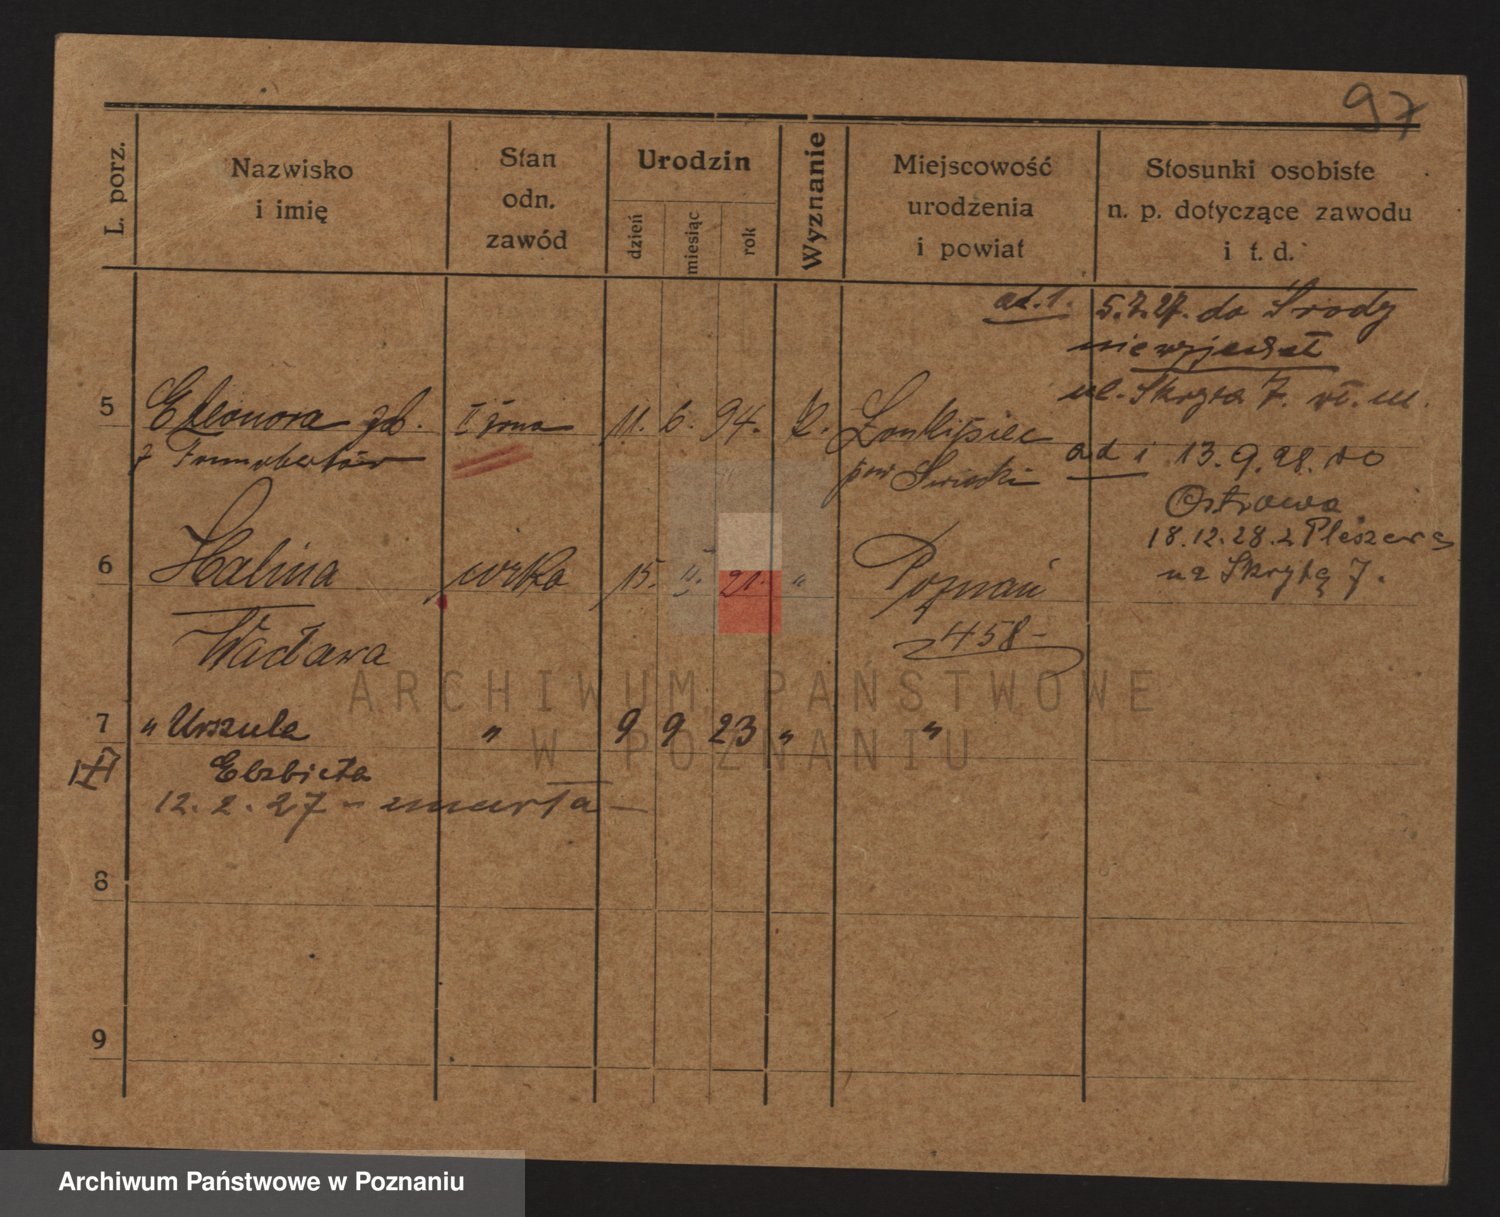 97
L. porz.
Nazwisko
i imię
Stan
odn.
zawód
Urodzin
dzień
miesiąc
rok
Wyznanie
Miejscowość
urodzenia
i powiat
Stosunki osobiste
n. p. dotyczące zawodu
i t. d.
ad. 1. 5.7.27. do Środy
nie wyjechał
ul. Skryta 7. m.
5 Eleonora II żona 11. 6. 94. K.
z
pow
ad 1 13.9.28. do
Ostrowa
18.12.28. z Pleszewa
na Skrytą 7.
6 Halina córka 15. 21. " Poznań
Wacława
458-
7 " Urszula " 9 9 23 " "
Elżbieta
12.2.27 - umarła -
8
9
ARCHIWUM PAŃSTWOWE
W POZNANIU
Archiwum Państwowe w Poznaniu